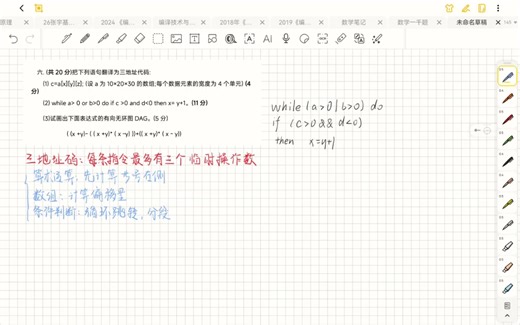 原理
26张宇基...
2024 《编...
编译技术与...
2018年《...
2019《编...
数学笔记
数学一千题
未命名草稿
六. (共 20 分)把下列语句翻译为三地址代码:
(1) c=a[x][y][z]; (设 a 为 10*20*30 的数组;每个数据元素的宽度为 4 个单元) (4
分)
(2) while a> 0 or b>0 do if c >0 and d<0 then x= y+1。(11 分)
(3)试画出下面表达式的有向无环图 DAG。(5 分)
( (x +y)- ( ( x +y)* ( x -y) ))+(( x +y)* ( x − y))
while (a>0 | b>0) do
if (c>0 && d<0)
then x=y+1
三地址码: 每条指令最多有三个临时操作数
算术运算: 先计算等号右侧
数组: 计算偏移量
条件判断: 循环跳转, 分歧